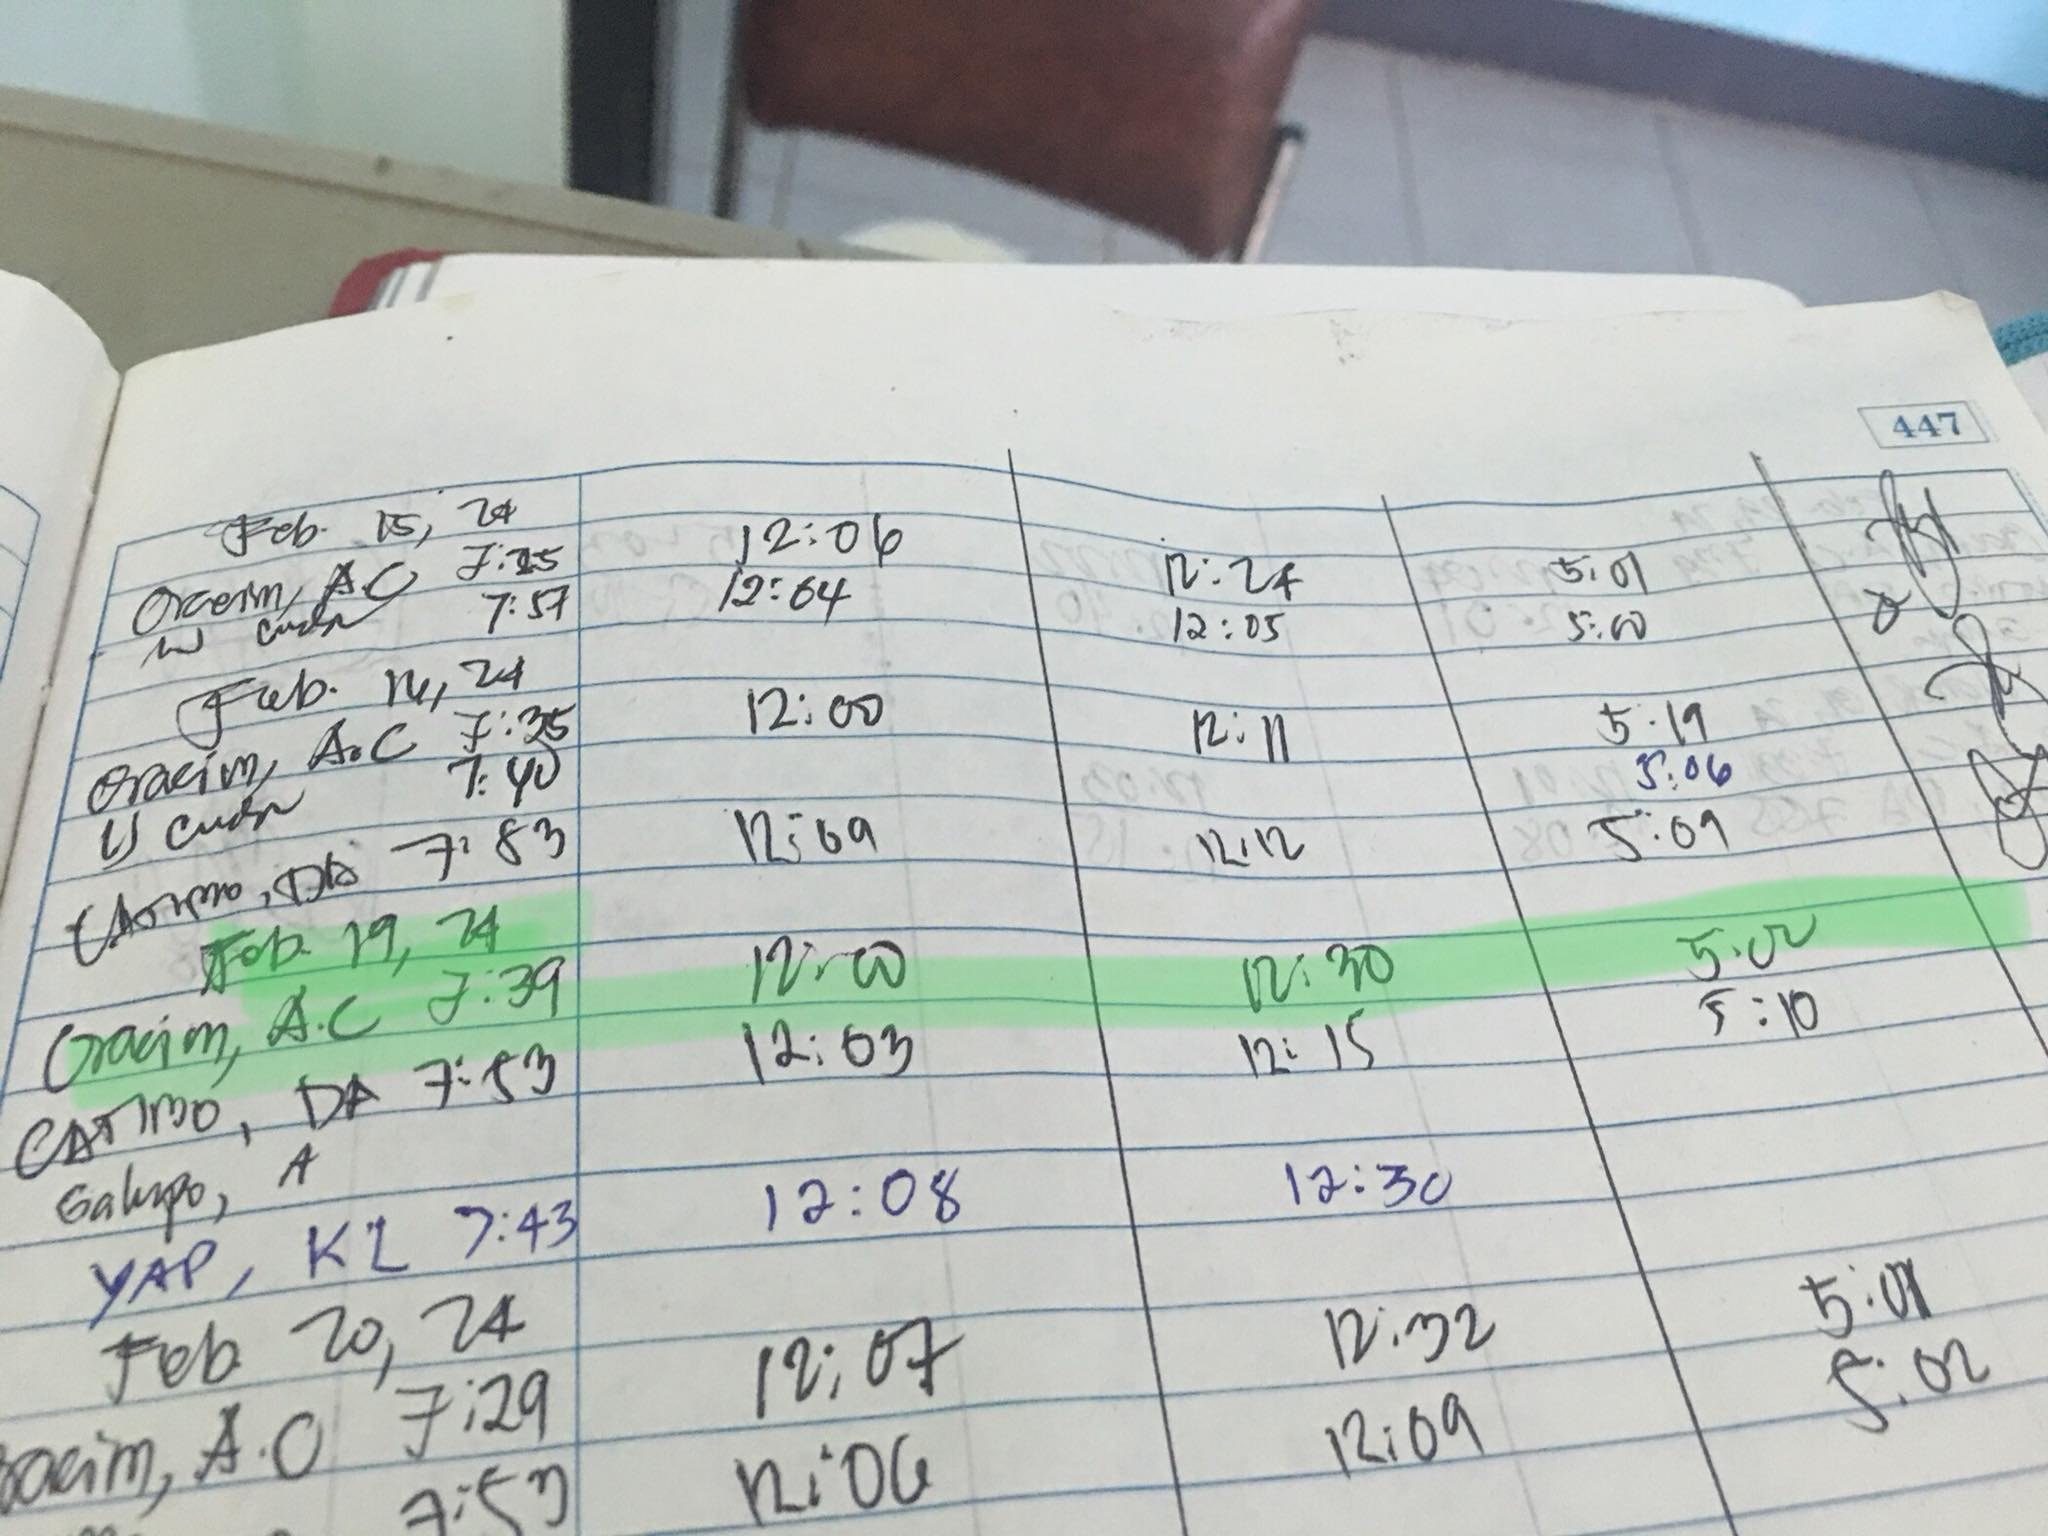 447
Feb. 15, 24
Oracim, A.C 7:25 12:06 12:24 5:01
7:57 12:04 12:05 5:00
Feb. 16, 24
Oracim, A.C 7:35 12:00 12:11 5:19
7:40 5:06
CATIMO, DA 7:53 12:09 12:12 5:09
Feb. 19, 24
Oracim, A.C 7:39 12:00 12:30 5:02
CATIMO, DA 7:53 12:03 12:15 5:10
Galupo, A
YAP, KL 7:43 12:08 12:30
Feb 20, 24
Oracim, A.C 7:29 12:07 12:32 5:01
7:53 12:06 12:09 5:02